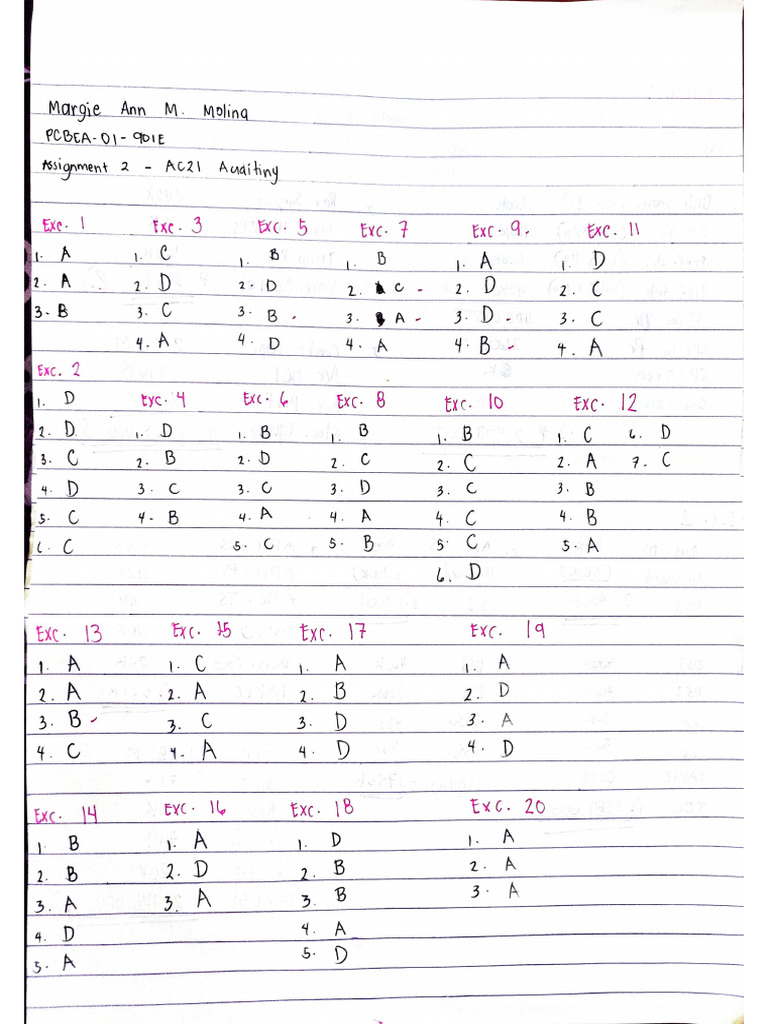 Margie Ann M. Molina
PCBEA-01-901E
Assignment 2 - AC21 Auaiting
Exc. 1 Exc. 3 Exc. 5 Exc. 7 Exc. 9. Exc. 11
1. A 1. C 1. B 1. B 1. A 1. D
2. A 2. D 2. D 2. C - 2. D 2. C
3. B 3. C 3. B - 3. A - 3. D - 3. C
4. A 4. D 4. A 4. B - 4. A
Exc. 2
1. D Exc. 4 Exc. 6 Exc. 8 Exc. 10 Exc. 12
2. D 1. D 1. B 1. B 1. B 1. C 6. D
3. C 2. B 2. D 2. C 2. C 2. A 7. C
4. D 3. C 3. C 3. D 3. C 3. B
5. C 4. B 4. A 4. A 4. C 4. B
6. C 5. C 5. B 5. C 5. A
6. D
Exc. 13 Exc. 15 Exc. 17 Exc. 19
1. A 1. C 1. A 1. A
2. A 2. A 2. B 2. D
3. B - 3. C 3. D 3. A
4. C 4. A 4. D 4. D
Exc. 14 Exc. 16 Exc. 18 Exc. 20
1. B 1. A 1. D 1. A
2. B 2. D 2. B 2. A
3. A 3. A 3. B 3. A
4. D 4. A
5. A 5. D